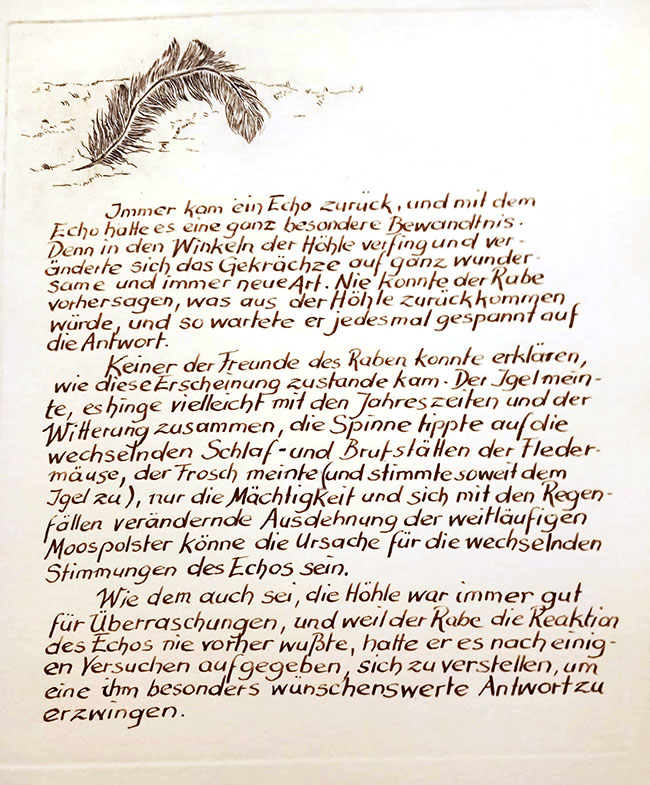 Immer kam ein Echo zurück, und mit dem
Echo hatte es eine ganz besondere Bewandtnis.
Denn in den Winkeln der Höhle verfing und ver-
änderte sich das Gekrächze auf ganz wunder-
same und immer neue Art. Nie konnte der Rabe
vorhersagen, was aus der Höhle zurückkommen
würde, und so wartete er jedesmal gespannt auf
die Antwort.
Keiner der Freunde des Raben konnte erklären,
wie diese Erscheinung zustande kam. Der Igel mein-
te, es hinge vielleicht mit den Jahreszeiten und der
Witterung zusammen, die Spinne tippte auf die
wechselnden Schlaf- und Brutstätten der Fleder-
mäuse, der Frosch meinte (und stimmte soweit dem
Igel zu), nur die Mächtigkeit und sich mit den Regen-
fällen verändernde Ausdehnung der weitläufigen
Moospolster könne die Ursache für die wechselnden
Stimmungen des Echos sein.
Wie dem auch sei, die Höhle war immer gut
für Überraschungen, und weil der Rabe die Reaktion
des Echos nie vorher wußte, hatte er es nach einig-
en Versuchen aufgegeben, sich zu verstellen, um
eine ihm besonders wünschenswerte Antwort zu
erzwingen.